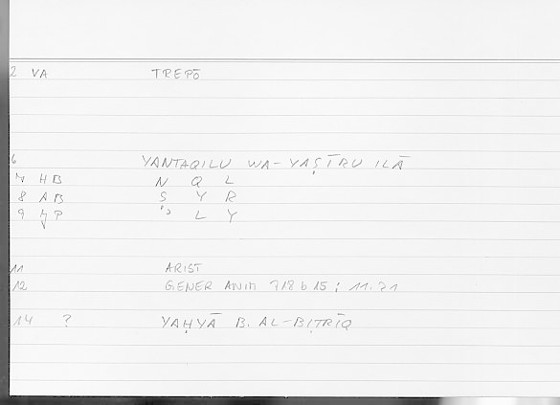 2 VA TREPŌ
6 YANTAQILU WA-YAṢĪRU ILĀ
7 HB N Q L
8 AB Ṣ Y R
9 P ʾ L Y
11 ARIST
12 GENER ANIM 718 b 15 ; 11.21
14 ? YAḤYĀ B. AL-BIṬRĪQ